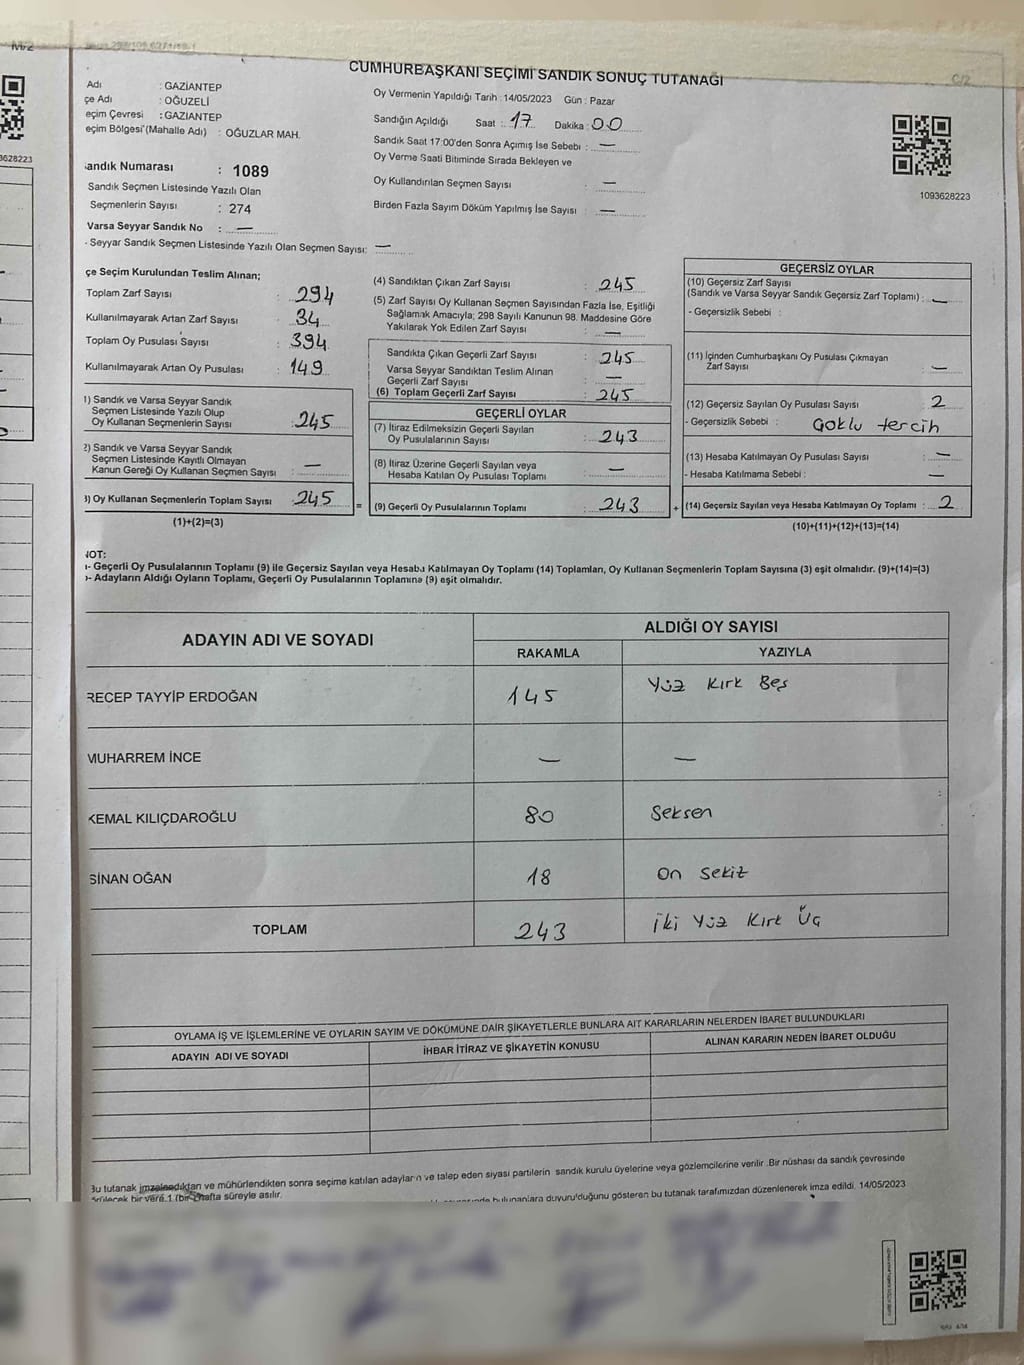 M/2
CUMHURBAŞKANI SEÇİMİ SANDIK SONUÇ TUTANAĞI
C/2
Adı : GAZİANTEP
çe Adı : OĞUZELİ
eçim Çevresi : GAZİANTEP
eçim Bölgesi (Mahalle Adı) : OĞUZLAR MAH.
andık Numarası : 1089
Sandık Seçmen Listesinde Yazılı Olan
Seçmenlerin Sayısı : 274
Varsa Seyyar Sandık No : —
- Seyyar Sandık Seçmen Listesinde Yazılı Olan Seçmen Sayısı: —
Oy Vermenin Yapıldığı Tarih : 14/05/2023 Gün : Pazar
Sandığın Açıldığı Saat : 17 Dakika : 00
Sandık Saat 17:00'den Sonra Açımış İse Sebebi : —
Oy Verme Saati Bitiminde Sırada Bekleyen ve
Oy Kullandırılan Seçmen Sayısı : —
Birden Fazla Sayım Döküm Yapılmış İse Sayısı : —
3628223
1093628223
çe Seçim Kurulundan Teslim Alınan;
Toplam Zarf Sayısı : 294
Kullanılmayarak Artan Zarf Sayısı : 34
Toplam Oy Pusulası Sayısı : 394
Kullanılmayarak Artan Oy Pusulası : 149
1) Sandık ve Varsa Seyyar Sandık
Seçmen Listesinde Yazılı Olup
Oy Kullanan Seçmenlerin Sayısı : 245
2) Sandık ve Varsa Seyyar Sandık
Seçmen Listesinde Kayıtlı Olmayan
Kanun Gereği Oy Kullanan Seçmen Sayısı : —
3) Oy Kullanan Seçmenlerin Toplam Sayısı : 245 =
(1)+(2)=(3)
(4) Sandıktan Çıkan Zarf Sayısı : 245
(5) Zarf Sayısı Oy Kullanan Seçmen Sayısından Fazla İse, Eşitliği
Sağlamak Amacıyla; 298 Sayılı Kanunun 98. Maddesine Göre
Yakılarak Yok Edilen Zarf Sayısı : —
Sandıkta Çıkan Geçerli Zarf Sayısı : 245
Varsa Seyyar Sandıktan Teslim Alınan
Geçerli Zarf Sayısı : —
(6) Toplam Geçerli Zarf Sayısı : 245
GEÇERLİ OYLAR
(7) İtiraz Edilmeksizin Geçerli Sayılan
Oy Pusulalarının Sayısı : 243
(8) İtiraz Üzerine Geçerli Sayılan veya
Hesaba Katılan Oy Pusulası Toplamı : —
(9) Geçerli Oy Pusulalarının Toplamı : 243 +
GEÇERSİZ OYLAR
(10) Geçersiz Zarf Sayısı
(Sandık ve Varsa Seyyar Sandık Geçersiz Zarf Toplamı) : —
- Geçersizlik Sebebi :
(11) İçinden Cumhurbaşkanı Oy Pusulası Çıkmayan
Zarf Sayısı : —
(12) Geçersiz Sayılan Oy Pusulası Sayısı : 2
- Geçersizlik Sebebi : Çoklu tercih
(13) Hesaba Katılmayan Oy Pusulası Sayısı : —
- Hesaba Katılmama Sebebi : —
(14) Geçersiz Sayılan veya Hesaba Katılmayan Oy Toplamı : 2
(10)+(11)+(12)+(13)=(14)
NOT:
ı- Geçerli Oy Pusulalarının Toplamı (9) ile Geçersiz Sayılan veya Hesaba Katılmayan Oy Toplamı (14) Toplamları, Oy Kullanan Seçmenlerin Toplam Sayısına (3) eşit olmalıdır. (9)+(14)=(3)
- Adayların Aldığı Oyların Toplamı, Geçerli Oy Pusulalarının Toplamına (9) eşit olmalıdır.
ADAYIN ADI VE SOYADI
ALDIĞI OY SAYISI
RAKAMLA YAZIYLA
RECEP TAYYİP ERDOĞAN 145 Yüz Kırk Beş
MUHARREM İNCE — —
KEMAL KILIÇDAROĞLU 80 Seksen
SİNAN OĞAN 18 On Sekiz
TOPLAM 243 İki Yüz Kırk Üç
OYLAMA İŞ VE İŞLEMLERİNE VE OYLARIN SAYIM VE DÖKÜMÜNE DAİR ŞİKAYETLERLE BUNLARA AİT KARARLARIN NELERDEN İBARET BULUNDUKLARI
ADAYIN ADI VE SOYADI İHBAR İTİRAZ VE ŞİKAYETİN KONUSU ALINAN KARARIN NEDEN İBARET OLDUĞU
Bu tutanak imzalandıktan ve mühürlendikten sonra seçime katılan adayların ve talep eden siyasi partilerin sandık kurulu üyelerine veya gözlemcilerine verilir. Bir nüshası da sandık çevresinde
bir yere 1 (bir) hafta süreyle asılır. bulunanlara duyurulduğunu gösteren bu tutanak tarafımızdan düzenlenerek imza edildi. 14/05/2023